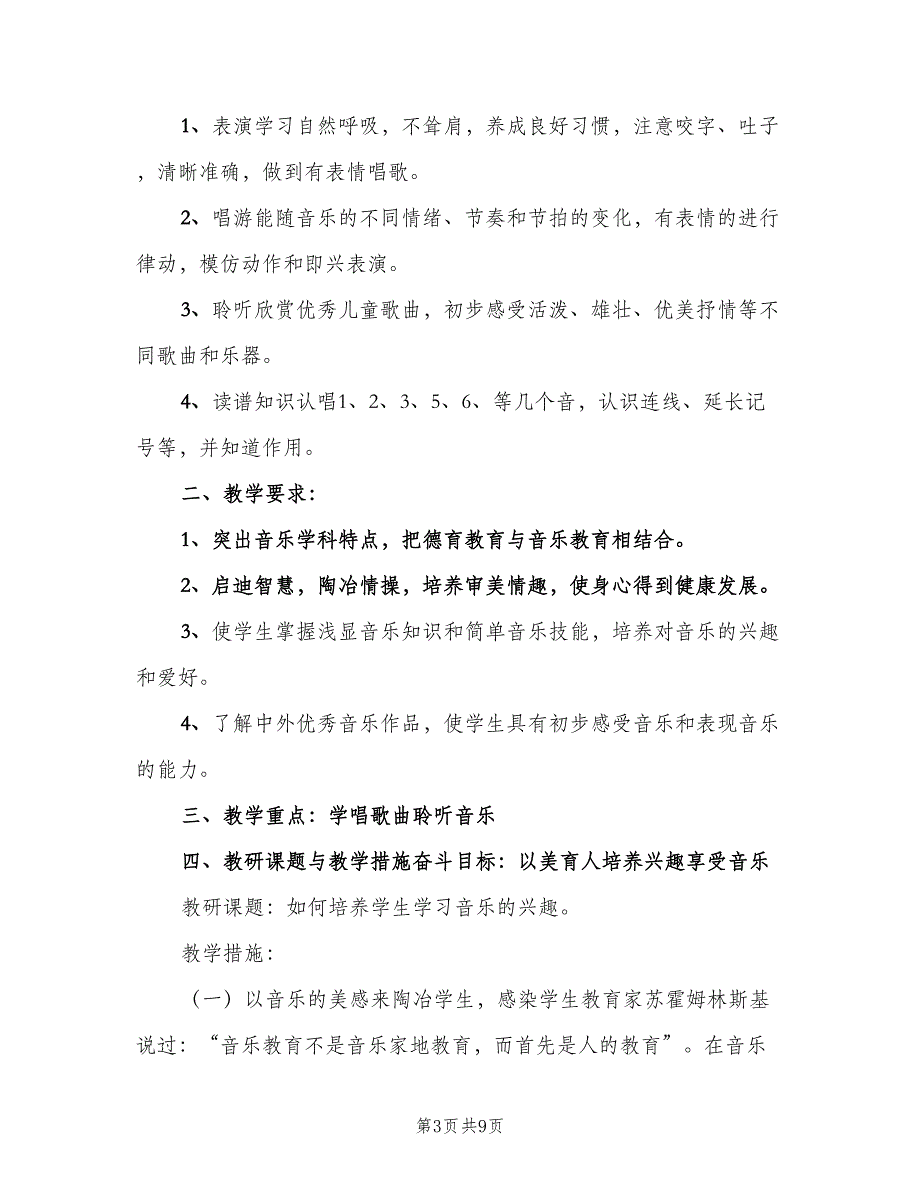 1、表演学习自然呼吸，不耸肩，养成良好习惯，注意咬字、吐子
，清晰准确，做到有表情唱歌。
2、唱游能随音乐的不同情绪、节奏和节拍的变化，有表情的进行
律动，模仿动作和即兴表演。
3、聆听欣赏优秀儿童歌曲，初步感受活泼、雄壮、优美抒情等不
同歌曲和乐器。
4、读谱知识认唱1、2、3、5、6、等几个音，认识连线、延长记
号等，并知道作用。
二、教学要求：
1、突出音乐学科特点，把德育教育与音乐教育相结合。
2、启迪智慧，陶冶情操，培养审美情趣，使身心得到健康发展。
3、使学生掌握浅显音乐知识和简单音乐技能，培养对音乐的兴趣
和爱好。
4、了解中外优秀音乐作品，使学生具有初步感受音乐和表现音乐
的能力。
三、教学重点：学唱歌曲聆听音乐
四、教研课题与教学措施奋斗目标：以美育人培养兴趣享受音乐
教研课题：如何培养学生学习音乐的兴趣。
教学措施：
（一）以音乐的美感来陶冶学生，感染学生教育家苏霍姆林斯基
说过：“音乐教育不是音乐家地教育，而首先是人的教育”。在音乐
第3页 共9页